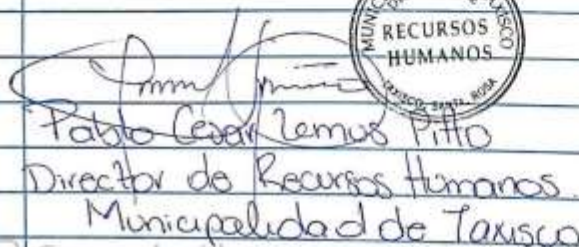 RECURSOS
HUMANOS
TAXISCO, SANTA ROSA
Pablo Cesar Lemus Pitto
Director de Recursos Humanos
Municipalidad de Taxisco